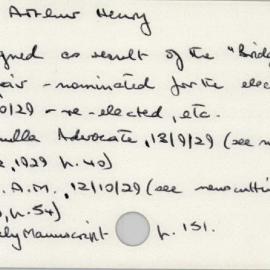 Arthur Henry
gned as result of the "Brid
air - nominated for the elec
0/29 - re-elected, etc.
ulla Advocate, 13/9/29 (see n
2, 1929 p. 40)
. A. M., 12/10/29 (see news cutti
0, p. 54)
ely Manuscript p. 151.